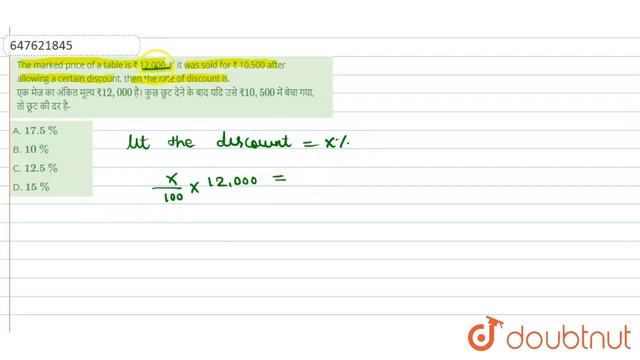 647621845
The marked price of a table is ₹ 12,000. If it was sold for ₹ 10,500 after
allowing a certain discount, then the rate of discount is.
एक मेज का अंकित मूल्य ₹12, 000 है। कुछ छूट देने के बाद यदि उसे ₹10, 500 में बेचा गया,
तो छूट की दर है-
A. 17.5 %
B. 10 %
C. 12.5 %
D. 15 %
let the discount = x%
x/100 × 12,000 =
doubtnut